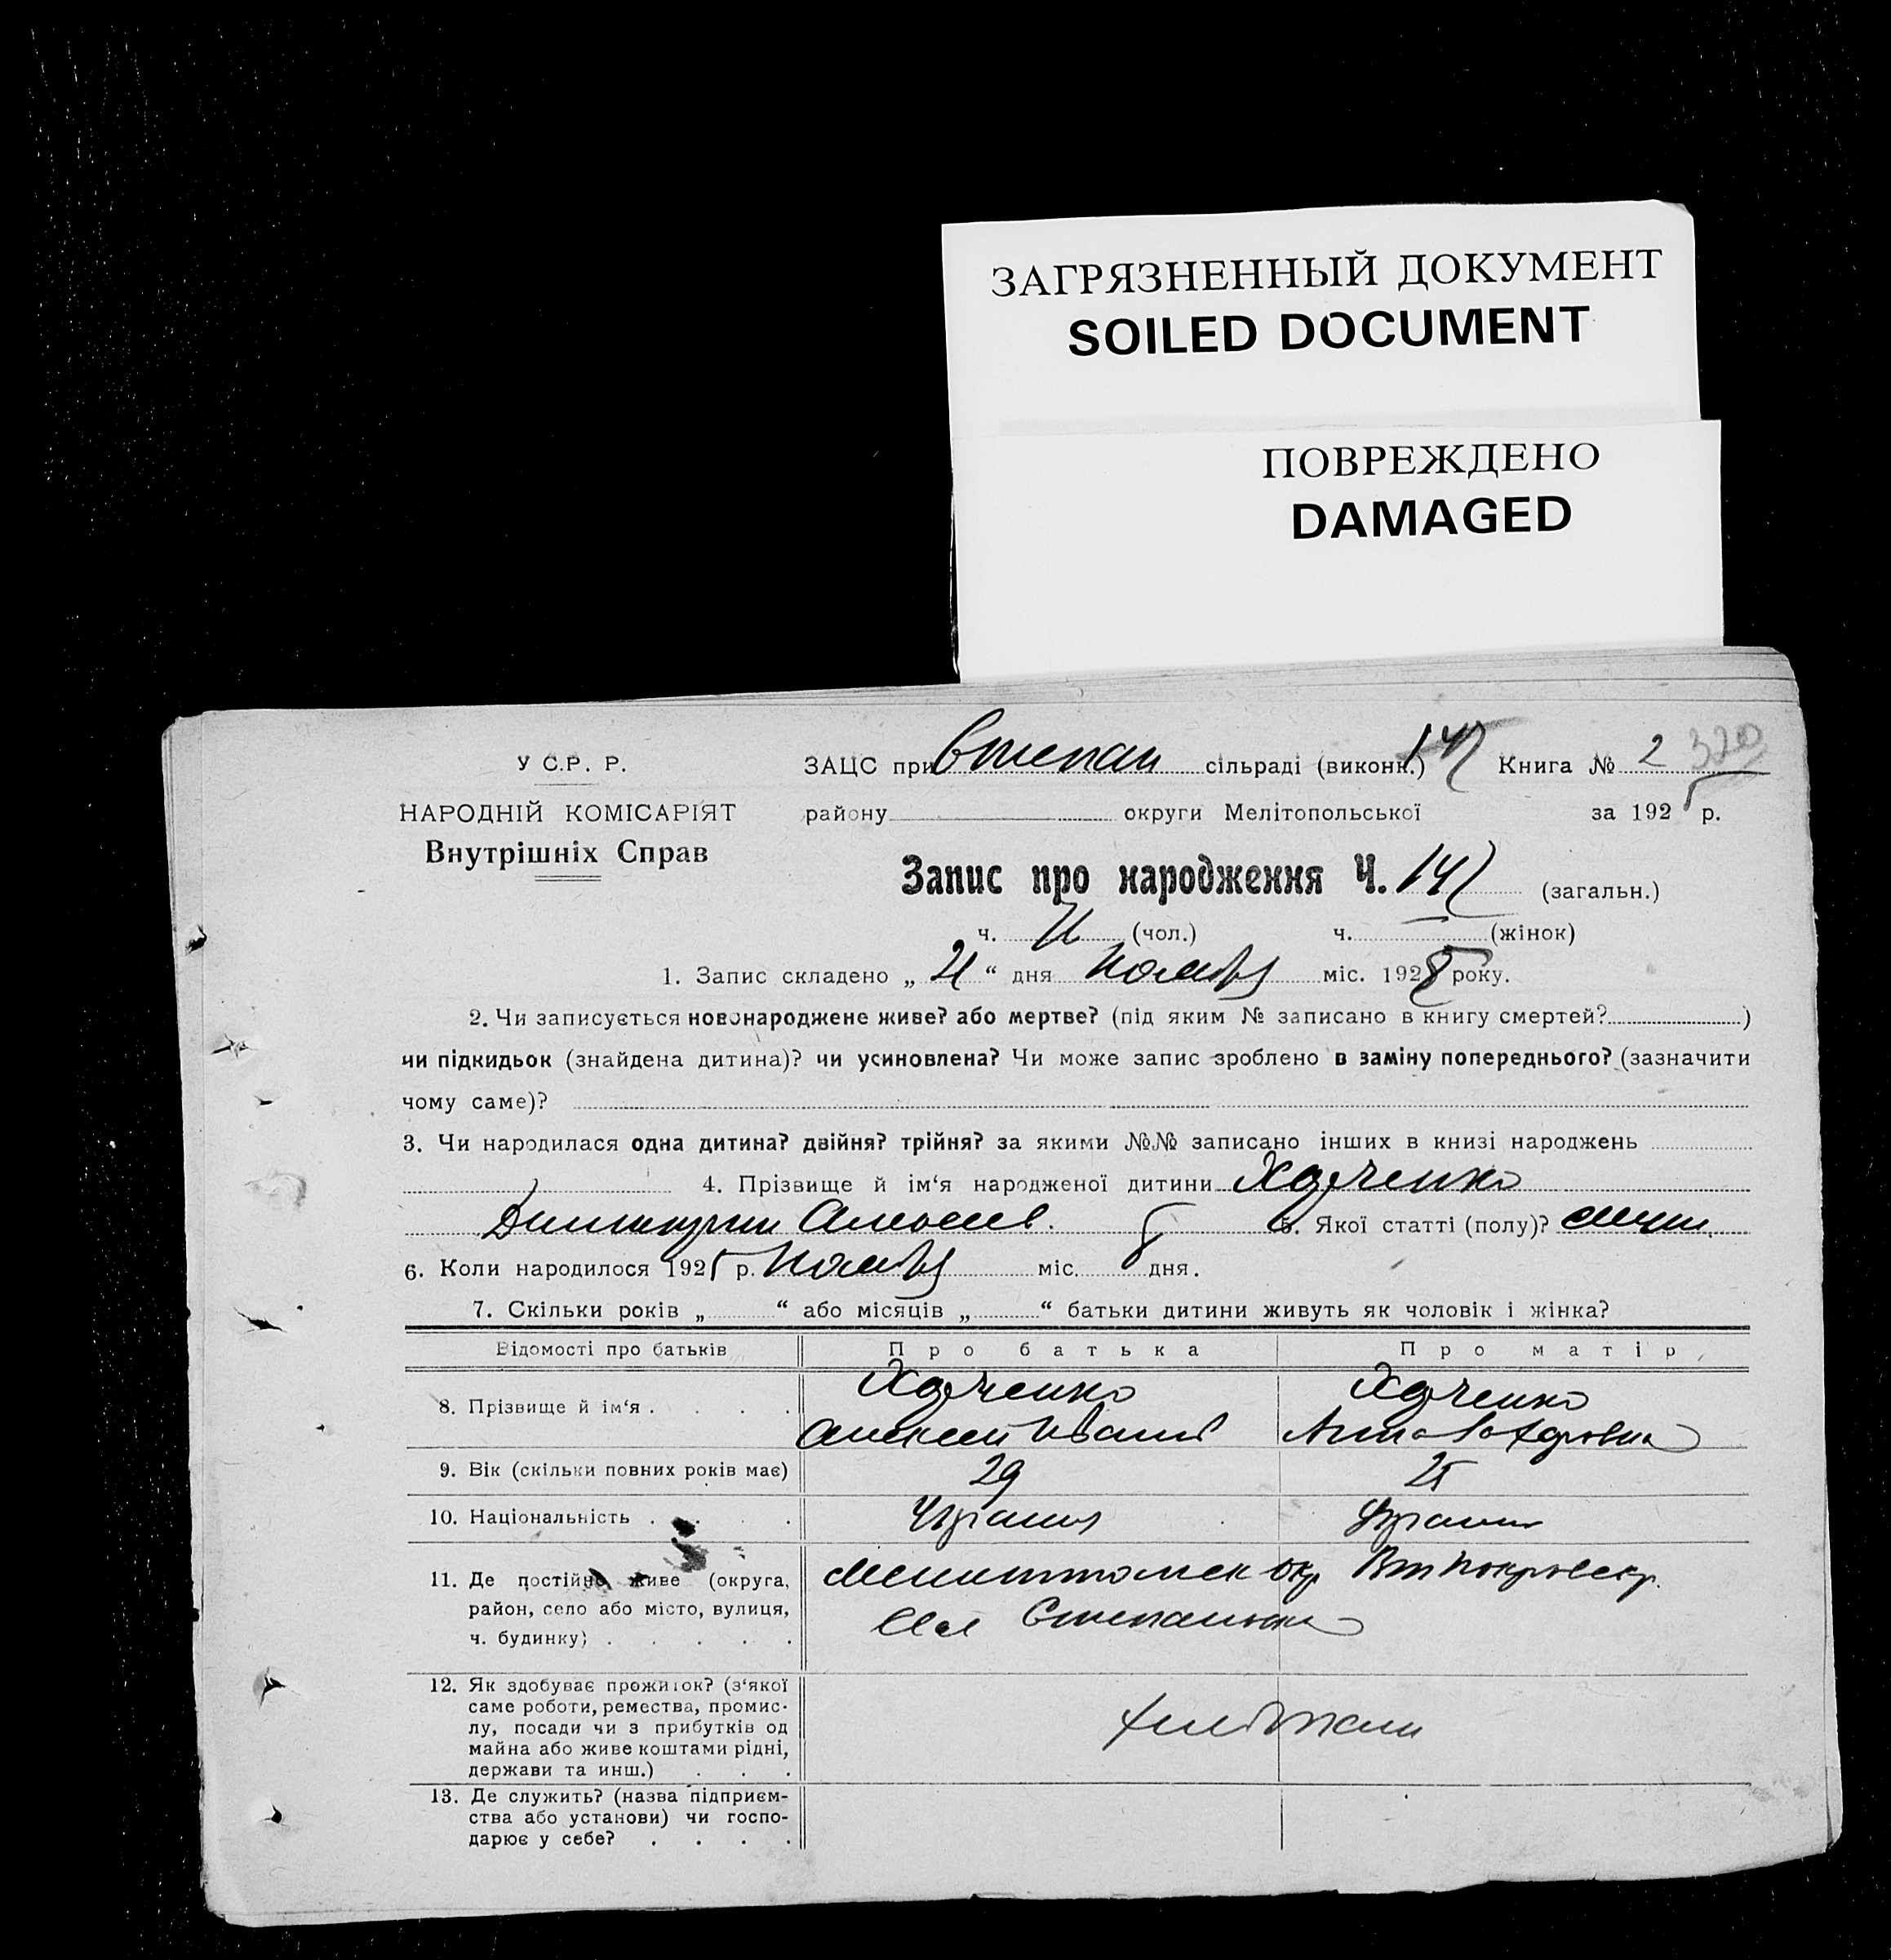 ЗАГРЯЗНЕННЫЙ ДОКУМЕНТ
SOILED DOCUMENT
ПОВРЕЖДЕНО
DAMAGED
У С.Р. Р.
ЗАЦС при Степан сільраді (викон.) Книга № 2 320
НАРОДНІЙ КОМІСАРІЯТ
Внутрішніх Справ
району округи Мелітопольської за 1925 р.
Запис про народження Ч. (загальн.)
ч. (чол.) ч. — (жінок)
1. Запис складено „ 21 “ дня Ноября міс. 1925 року.
2. Чи записується новонароджене живе? або мертве? (під яким № записано в книгу смертей? )
чи підкидьок (знайдена дитина)? чи усиновлена? Чи може запис зроблено в заміну попереднього? (зазначити
чому саме)?
3. Чи народилася одна дитина? двійня? трійня? за якими №№ записано інших в книзі народжень
4. Прізвище й ім‘я народженої дитини
Димитрий Алексеев. 5. Якої статті (полу)? мужи.
6. Коли народилося 1925 р. Ноября міс. 8 дня.
7. Скільки років „ “ або місяців „ “ батьки дитини живуть як чоловік і жінка?
Відомості про батьків Про батька Про матір
8. Прізвище й ім‘я . . . .
Алексей Иванов Анна
9. Вік (скільки повних років має) 29 25
10. Національність . . . . Украин Украин
11. Де постійно живе (округа, район, село або місто, вулиця, ч. будинку) . . . . .
Мелитопольск окр
Сел Степановка
12. Як здобуває прожиток? (з‘якої
саме роботи, ремества, промис-
лу, посади чи з прибутків од
майна або живе коштами рідні,
держави та инш.) . . .
хлебопаш
13. Де служить? (назва підприєм-
ства або установи) чи госпо-
дарює у себе? . . . .